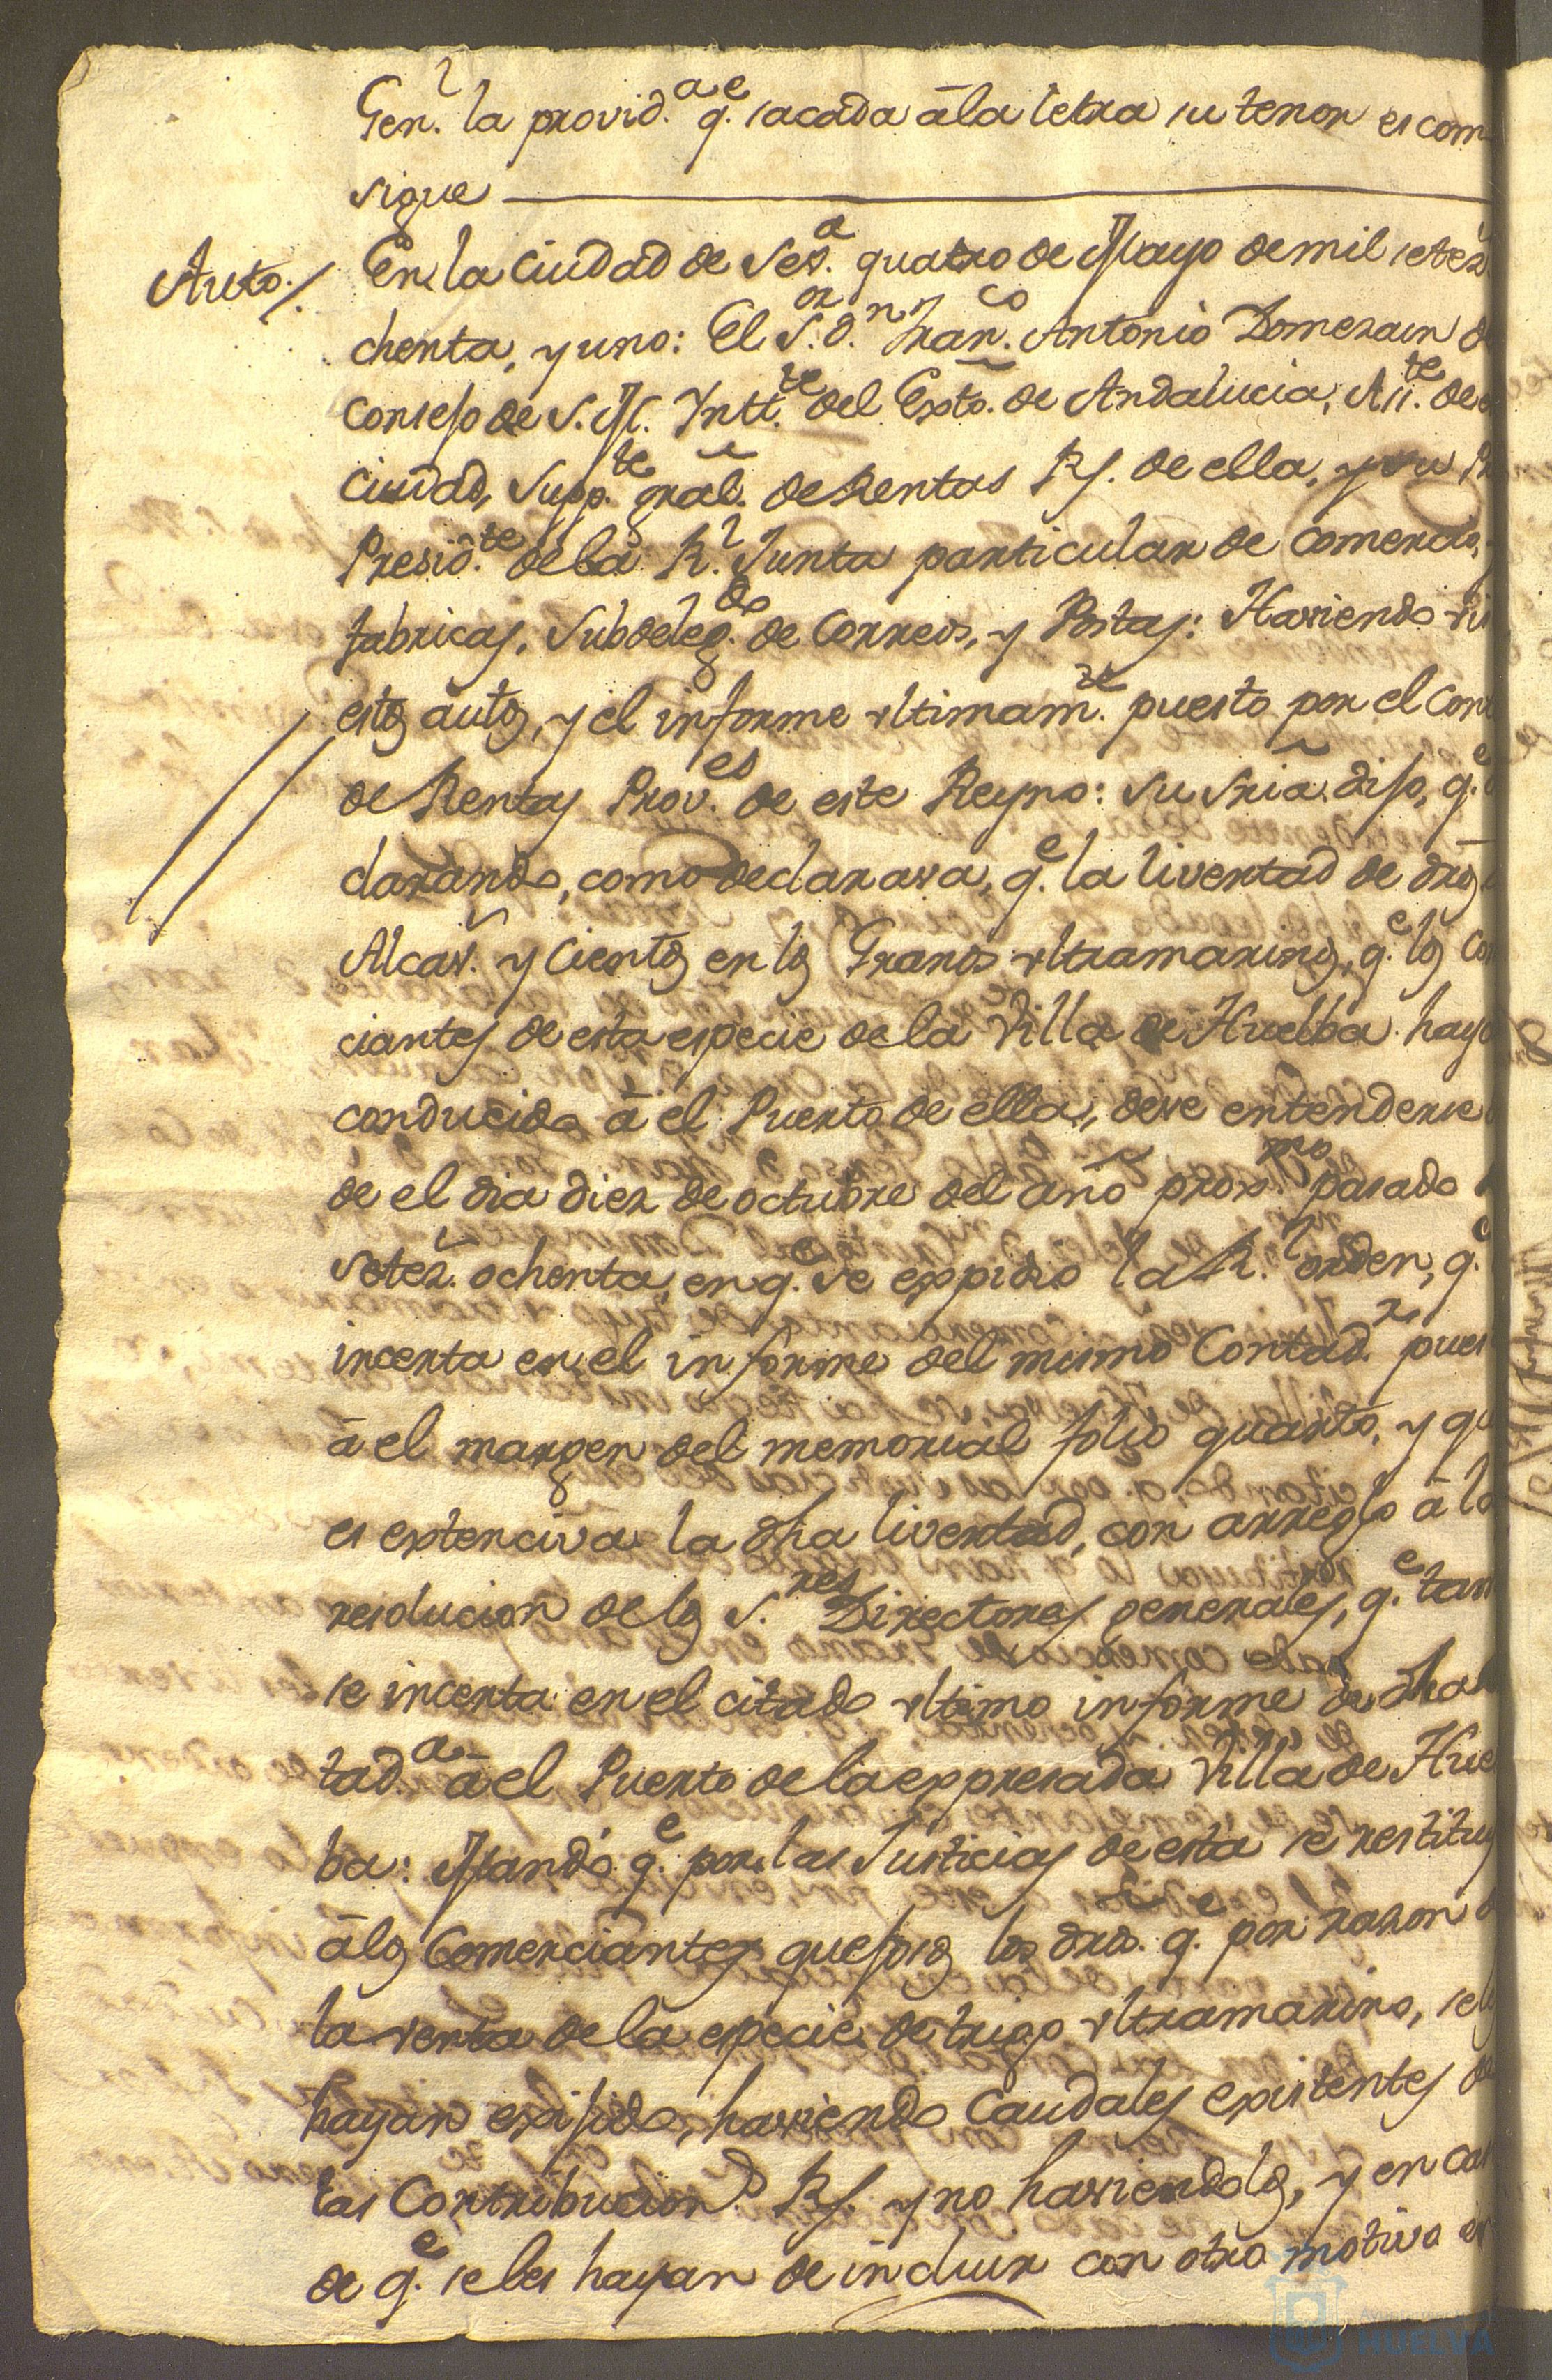 Gen.l la provid.a q.e sacada â la letra su tenor es com
sigue
Auto./ En la Ciudad de Sev.a quatro de Mayo de mil setez
chenta, y uno: El S.or d.n Fran.co Antonio Domezain d
Consejo de S. M. Intt.te del Exto. de Andalucia, Assi.te de e
Ciudad, Supp.te gral. de Rentas R.s de ella, y su Pr
Presid.te de la R.l Junta particular de Comercio, y
fabricas, Subdeleg.do de Correos, y Postas: Haviendo vis
estos autos, y el informe vltimam.te puesto por el Con
de Rentas Prov.es de este Reyno: Su Sria. dijo, q.e
clarando, como declarava, q.e la livertad de dros
Alcav. y Cientos en los Granos vltramarinos, q.e los Co
ciantes de esta especie de la Villa de Huelba haya
conducido â el Puerto de ella, deve entenderse
de el dia diez de octubre del año prox.mo pasado
setez. ochenta, en q.e se expidio la R.l orden, q.e
incerta en el informe del mismo Contad.r pues
â el margen del memorial folio quarto, y qu
es extenciva la dha livertad, con arreglo â la
resolucion de los S.res Directores generales, q.e tam
se incerta en el citado vltimo informe de dha
tad.a â el Puerto de la expresada Villa de Hue
ba: Mandó q.e por las Justicias de esta se restituy
â los Comerciantes quejosos los dros. q.e por razon d
la venta de la especie de trigo vltramarino, se les
hayan exijido, haviendo Caudales existentes de
las Contribucion.s R.s y no haviendolos, y en cas
de q.e se les hayan de incluir con otro motivo en
HUELVA